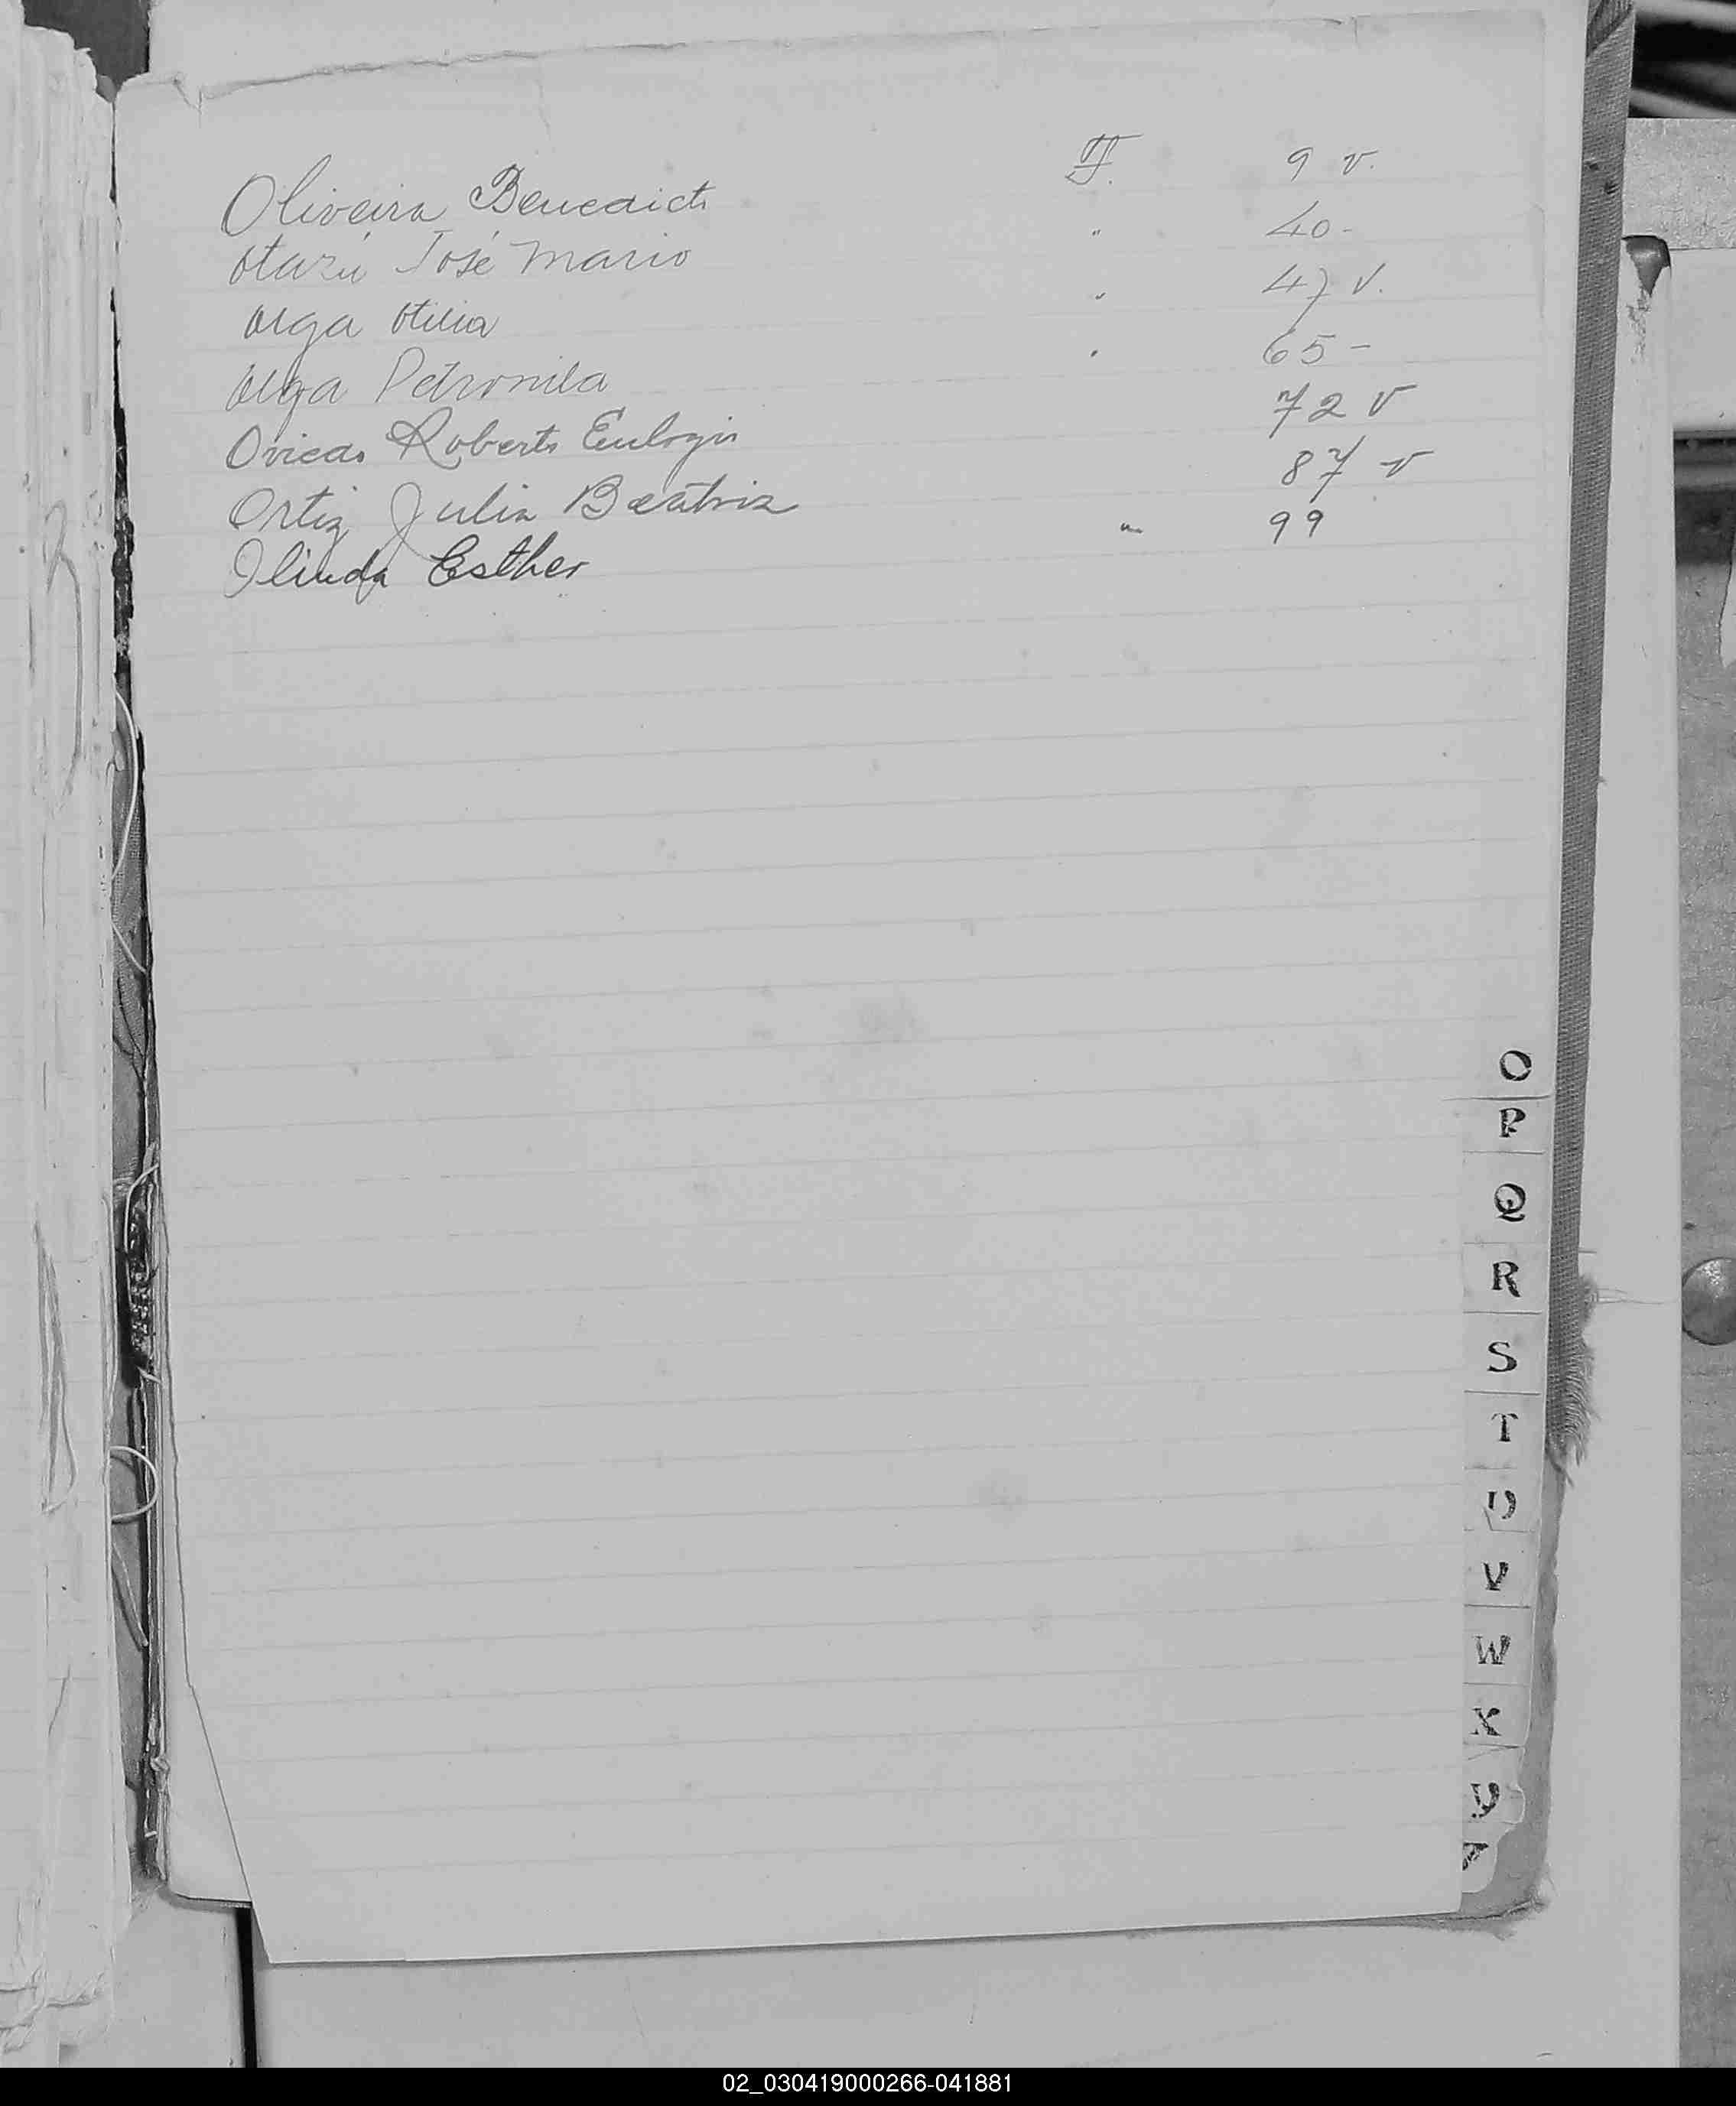 Oliveira Benedicto ff. 9 v.
Otazú José Mario " 40 -
Olga Otilia " 47 v.
Olga Petronila " 65 -
Oviedo Roberto Eulogio 72 v
Ortiz Julia Beatriz 87 v
Olinda Esther " 99
O
P
Q
R
S
T
U
V
W
X
Y
02_030419000266-041881